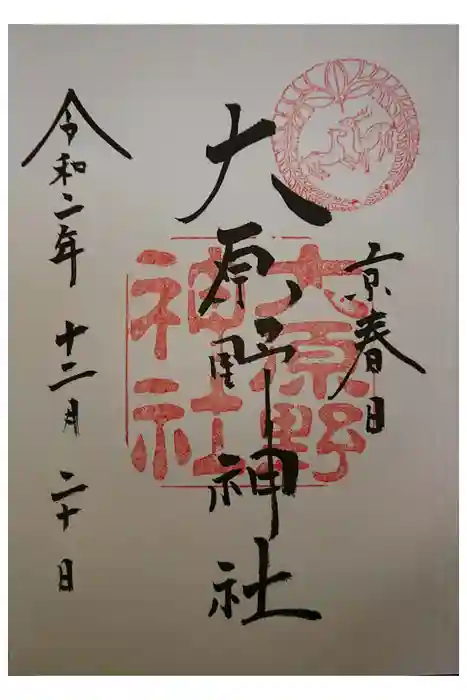 京春日
大原野神社
大原野
神社
令和二年十二月二十日